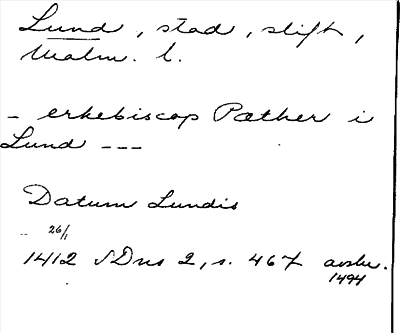 Lund, stad, stift,
Malm. l.
- erkebiscop Pæther i
Lund ---
Datum Lundis
26/1
1412 SDns 2, s. 467 avskr.
1494